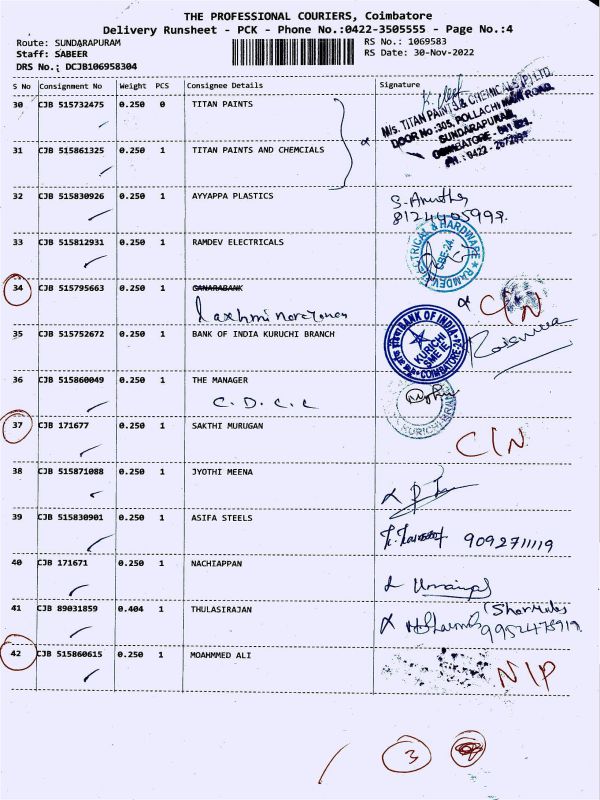 THE PROFESSIONAL COURIERS, Coimbatore
Delivery Runsheet - PCK - Phone No.:0422-3505555 - Page No.:4
Route: SUNDARAPURAM
RS No.: 1069583
Staff: SABEER
RS Date: 30-Nov-2022
DRS No.: DCJB106958304
S No Consignment No Weight PCS Consignee Details Signature
30 CJB 515732475 0.250 0 TITAN PAINTS
M/s. TITAN PAINTS & CHEMICALS (P) LTD.
DOOR No :305, POLLACHI MAIN ROAD,
SUNDARAPURAM,
COIMBATORE - 641 021.
PH.: 0422 -
31 CJB 515861325 0.250 1 TITAN PAINTS AND CHEMCIALS
32 CJB 515830926 0.250 1 AYYAPPA PLASTICS
33 CJB 515812931 0.250 1 RAMDEV ELECTRICALS
RAMDEV ELECTRICAL & HARDWARE
CBE-24.
34 CJB 515795663 0.250 1 CANARABANK
Laxhmi Narayanan
C/N
35 CJB 515752672 0.250 1 BANK OF INDIA KURUCHI BRANCH
BANK OF INDIA
KURICHI
SME IE
COIMBATORE-2
36 CJB 515860049 0.250 1 THE MANAGER
C.D.C.C
37 CJB 171677 0.250 1 SAKTHI MURUGAN
C/N
38 CJB 515871088 0.250 1 JYOTHI MEENA
39 CJB 515830901 0.250 1 ASIFA STEELS
9092711119
40 CJB 171671 0.250 1 NACHIAPPAN
41 CJB 89031859 0.404 1 THULASIRAJAN
42 CJB 515860615 0.250 1 MOAHMMED ALI
N/P
3